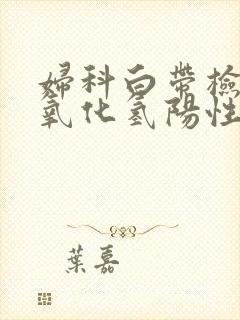 婦科白帶檢
氧化氢陽性
葉嘉